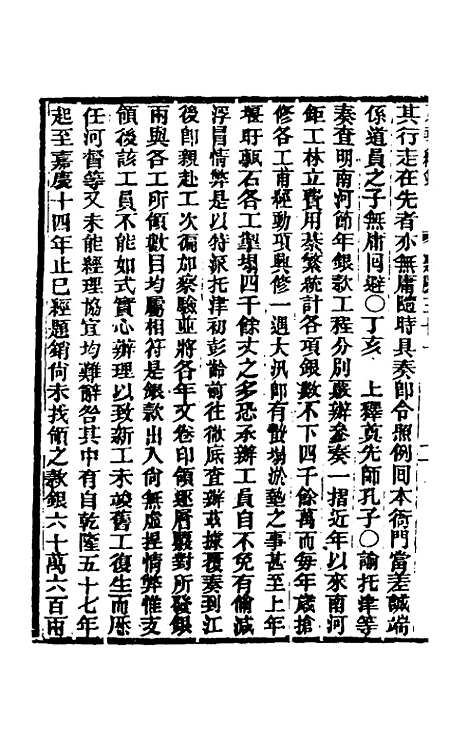 其行走在先者亦無庸隨時具奏卽令照例囘本衙門當差誠端
係道員之子無庸囘避○丁亥　上釋奠先師孔子○諭托津等
奏查明南河節年銀款工程分別覈辦參奏一摺近年以來南河
鉅工林立費用綦繁統計各項銀數不下四千餘萬而每年歲搶
修各工甫經動項興修一遇大汛卽有蟄塌淤墊之事甚至上年
堰盱甎石各工掣塌四千餘丈之多恐承辦工員自不免有偷減
浮冒情弊是以特派托津初彭齡前往徹底查辦茲據覆奏到江
後卽親赴工次徧加察驗並將各年文卷印領逐厝覈對所發銀
兩與各工所領數目均屬相符是銀款出入尙無虛捏情弊惟支
領後該工員不能如式實心辦理以致新工未竣舊工復生而歷
任河督等又未能經理協宜均難辭咎其中有自乾隆五十七年
起至嘉慶十四年止已經題銷尙未找領之款銀六十萬六百兩